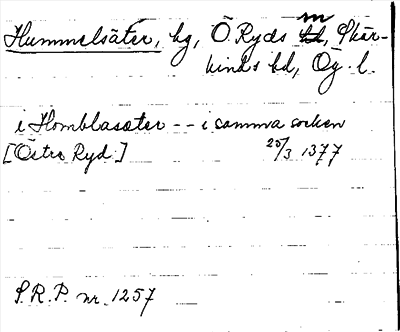 Hummelsäter, hg, Ö Ryds sn, Skär-
kinds hd, Ög. l.
i Homblasæter -- i samma socken
[Östra Ryd] 25/3 1377
S.R.P. nr. 1257